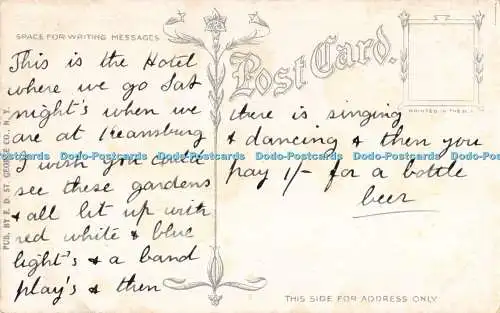 SPACE FOR WRITING MESSAGES
Post Card.
This is the Hotel
where we go Sat
night's when we
are at Keansburg
I wish you could
see these gardens
& all lit up with
red white & blue
light's & a band
play's & then
there is singing
& dancing & then you
pay 1/- for a bottle
beer
PUB. BY F. D. ST. GEORGE CO., N. Y.
THIS SIDE FOR ADDRESS ONLY
Dodo-Postcards Dodo-Postcards Dodo-Postcards Dodo-Postcards Dodo-Postcards